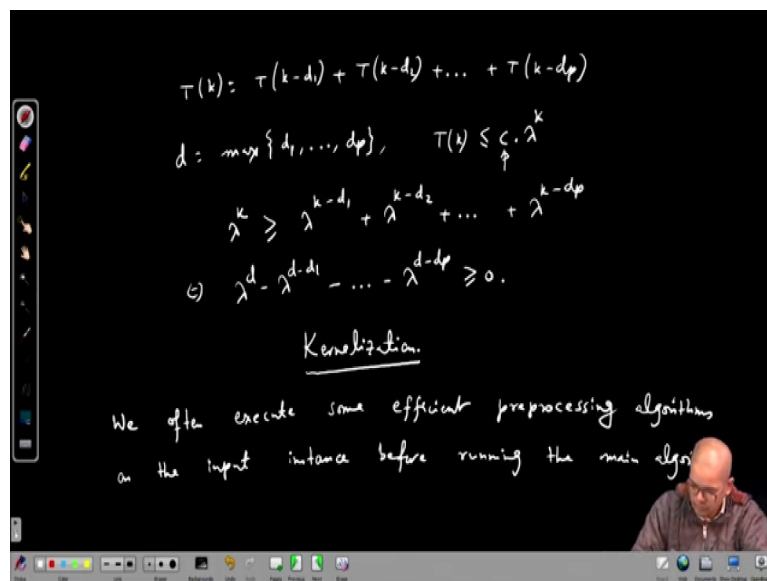 T(k) = T(k-d₁) + T(k-d₂) + ... + T(k-dₚ)
d = max {d₁, ..., dₚ}, T(k) ≤ c · λᵏ
λᵏ ≥ λᵏ⁻ᵈ¹ + λᵏ⁻ᵈ² + ... + λᵏ⁻ᵈᵖ
⇔ λᵈ - λᵈ⁻ᵈ¹ - ... - λᵈ⁻ᵈᵖ ≥ 0.
Kernelization.
We often execute some efficient preprocessing algorithms
on the input instance before running the main